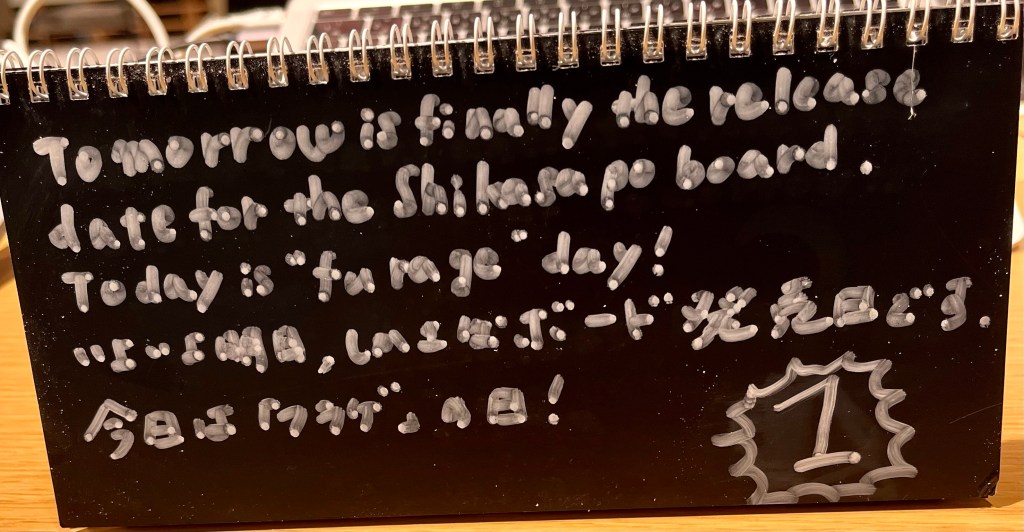 Tomorrow is finally the release
date for the Shikasapo board.
Today is day!
いよいよ明日, ボード発売日です.
今日は の日!
1